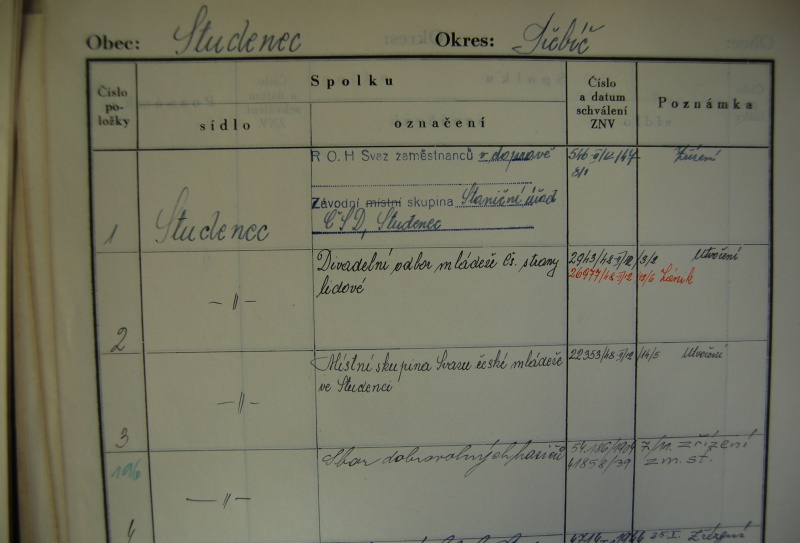 Obec: Studenec Okres: Třebíč
Číslo po-ložky
Spolku
sídlo
označení
Číslo a datum schválení ZNV
Poznámka
1 Studenec
R O. H Svaz zaměstnanců v dopravě
Závodní místní skupina Staniční úřad
ČSD, Studenec
546 II/12/47
Zřízení
2 —〃—
Divadelní odbor mládeže čs. strany
lidové
2943/48-II/12 /3/2 Utvoření
26977/48-II/12 /6 Zánik
3 —〃—
Místní skupina Svazu české mládeže
ve Studenci
22353/48-II/12 /14/5 Utvoření
4 —〃—
Sbor dobrovolných hasičů
54.186/1904 7/11. zřízení
41858/39 zm. st.
25 I. Zřízení